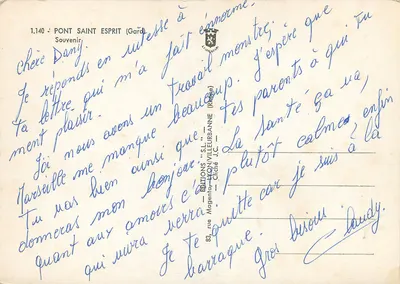 1.140 - PONT SAINT ESPRIT (Gard)
Souvenir
Chère Dany.
Je réponds en vitesse à
ta lettre qui m'a fait énormé-
ment plaisir.
Ici nous avons un travail monstre,
Marseille me manque beaucoup. J'espère que
Tu vas bien ainsi que tes parents à qui tu
donneras mon bonjour. La santé ça va,
quant aux amours c'est plutôt calme, enfin
qui vivra verra. Je te quitte car je suis à la
barraque. Gros bisous.
Claudy
EDITIONS "S.L."
83, rue Magenta - LYON-VILLEURBANNE (Rhône)
Cliché J.C.